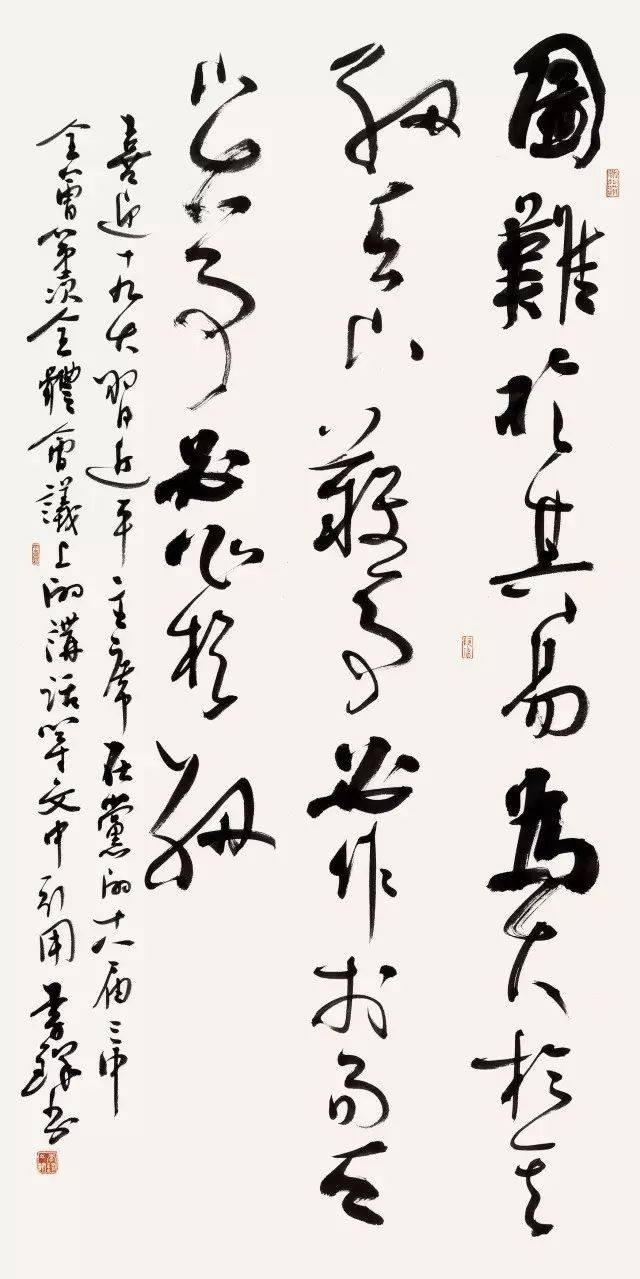 圖難於其易為大於其
細天下難事必作於易天
下之大事必作於細
喜迎十九大習近平主席在黨的十八屆三中
全會第次全體會議上的講話等文中引用 鐸書